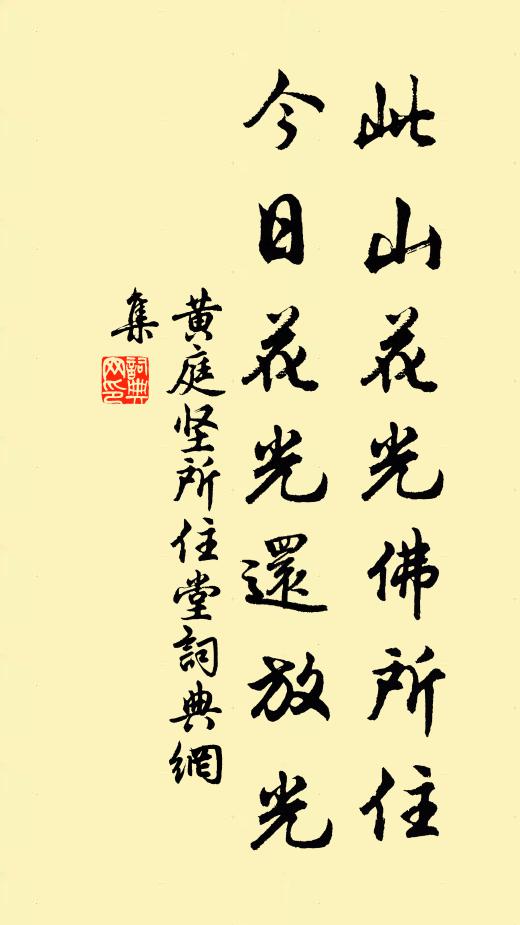 此山花光佛所住
今日花光還放光
黄庭坚所住堂詞典網
集
詞典
网印